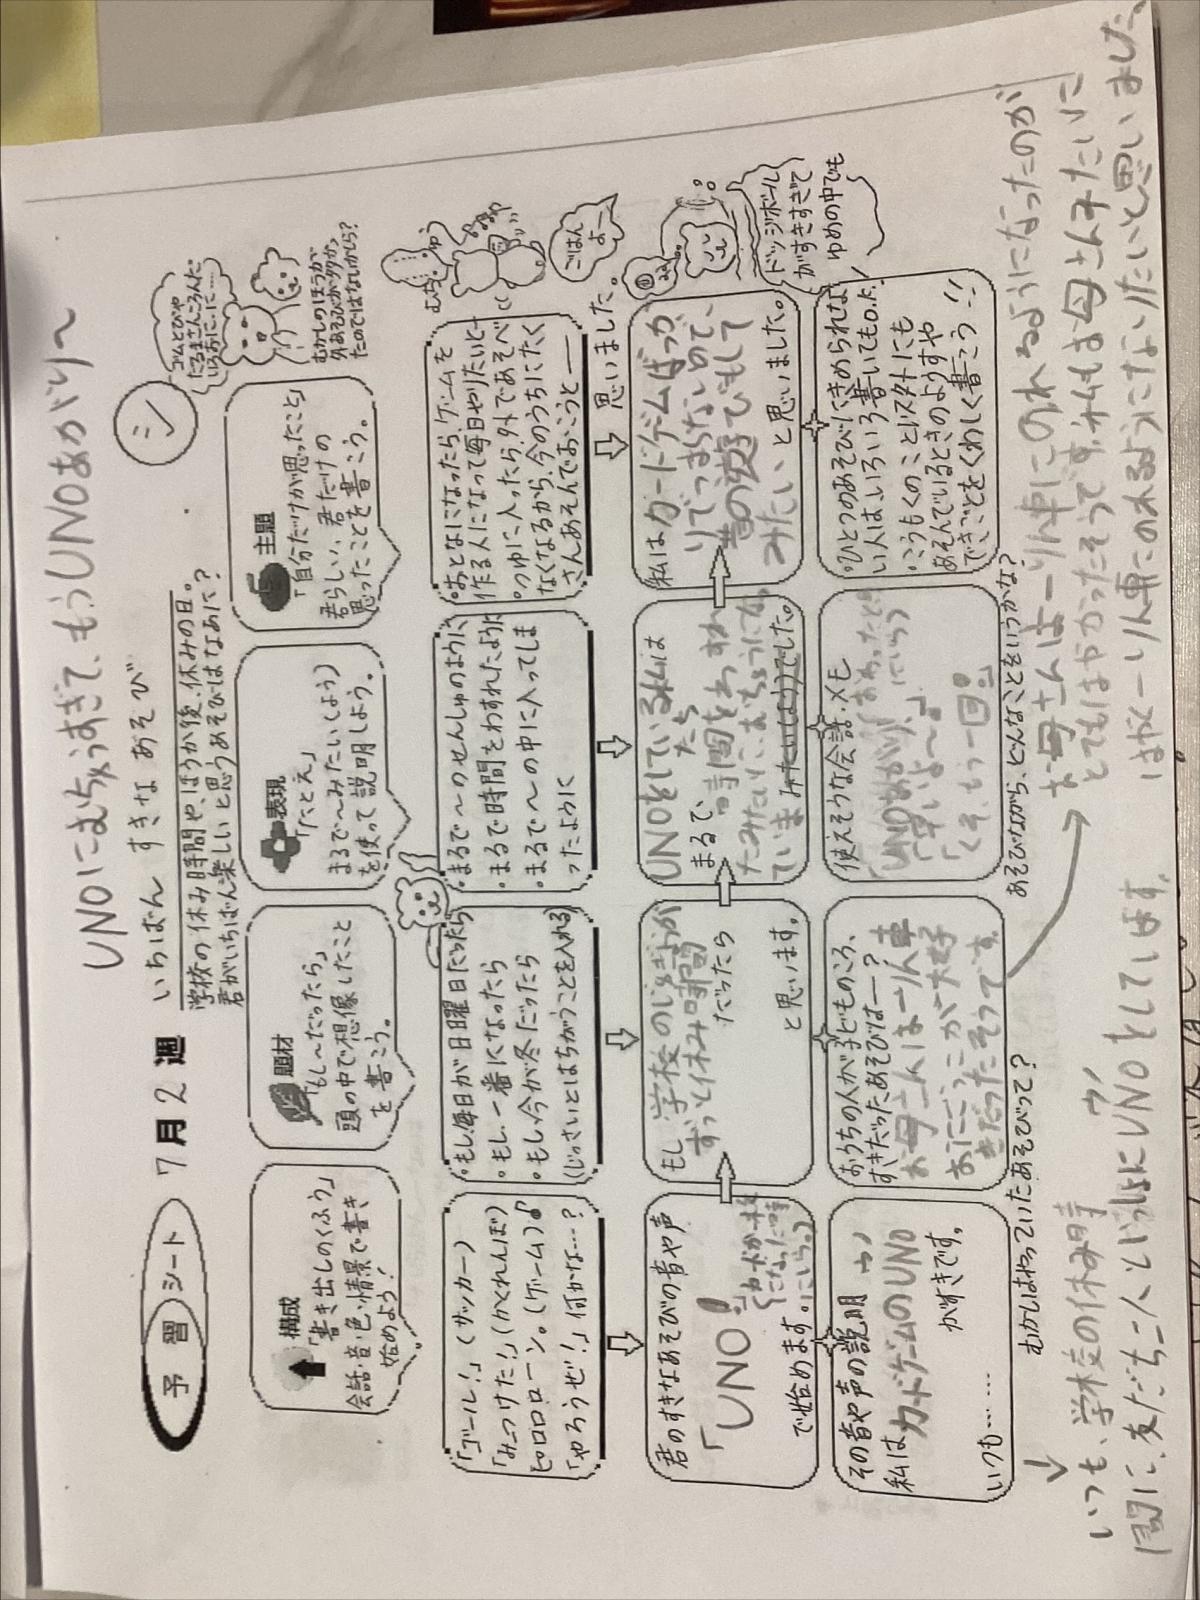 UNOにむちゅうすぎて、もうUNOあがり〜
予習シート 7月2週 いちばん すきな あそび
学校の休み時間や、ほうか後、休みの日。
君がいちばん楽しいと思うあそびはなあに?
ゴムとびや
だるまさんころんだ
いろおに…に……
むかしのほうが
外あそびが多かっ
たのではないかしら?
構成
「書き出しのくふう」
会話・音・色・情景で書き
始めよう!
題材
「もし〜だったら」
頭の中で想像したこと
を書こう。
表現
「たとえ」
まるで〜みたい(よう)
を使って説明しよう。
主題
「自分だけが思ったこと」
君らしい、君だけの
思ったことを書こう。
「ゴール!」(サッカー)
「みつけた!」(かくれんぼ)
ピロロロローン。(ゲーム)
「やろうぜ!」何かな…?
・もし毎日が日曜日だったら
・もし、一番になったら
・もし、今が冬だったら
(じっさいとはちがうことを入れる)
・まるで〜のせんしゅのように
・まるで時間をわすれたように
・まるで〜の中に入ってしま
ったように
・おとなになったら、ゲームを
作る人になって毎日やりたいと―
・つゆに入ったら、外であそべ
なくなるから、今のうちにたく
さんあそんでおこうと――
思いました。
ごはん
よー
君のすきなあそびの音や声
「UNO!」
(カードが一枚
になった時
にいう。)
で始めます。
もし 学校のじゅぎょうが
ずっと休み時間
だったら
と思います。
UNOをしている私
たちは
まるで、時間をわすれ
たみたいにむちゅうになっ
ていま
みたい(ようで)でした。
私はカードゲームばっか
りでつまらないので、
昔の遊びもして
みたい
と思いました。
ドッジボール
がすきすぎて
ゆめの中でも
その音や声の説明
私は カードゲームのUNO
がすきです。
いつも……
おうちの人が子どものころ、
すきだったあそびは――?
お母さんは一りん車
おにごっこが大好
きだったそうです。
使えそうな会話・メモ
「UNOあがり!」
「早いよ〜。」
「くそ、もう一回。」
・ひとつのあそびにきめられな
い人は、いろいろ書いてもO.K!
・こうもくのこといがい外にも
あそんでいるときのようすや
できごとをくわしく書こう!!
むかしはやっていたあそびって?
あそびながら、どんなことをいうかな?
いつも、学校の休み時
間に、友だち二人といっしょにUNOをしています。
お母さんは一りん車にのれるようになったのが
とてもはやかったそうです。私もお母さんみたいに
はやく一りん車にのれるようになりたいと思いました。